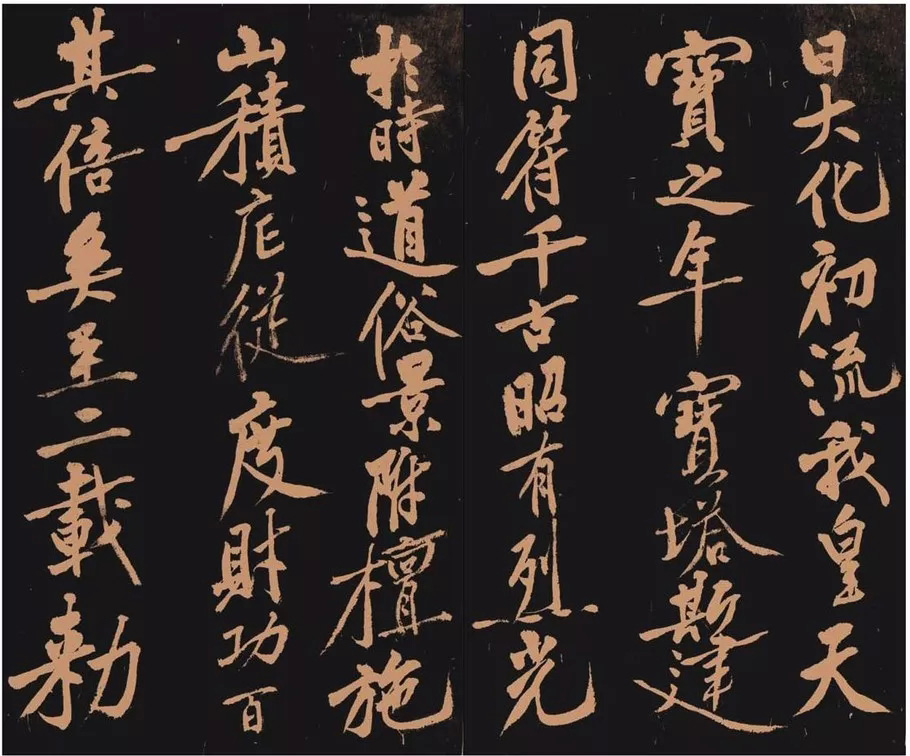 日大化初流我皇天
寶之年寶塔斯建
同符千古昭有烈光
於時道俗景附檀施
山積庀從度財功百
其倍矣至二載勑